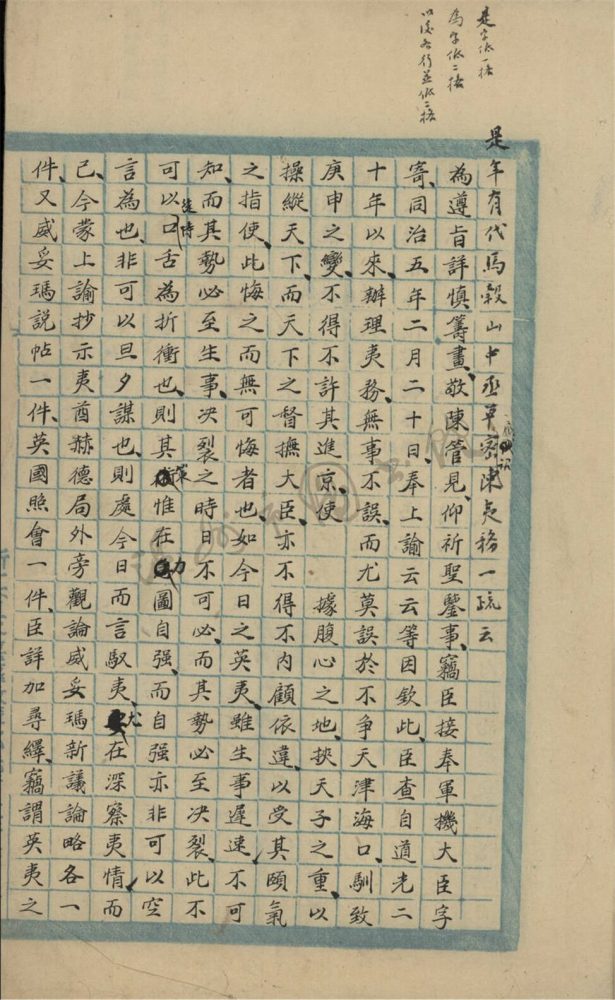 是字低一格
為字低二格
以後各行並低二格
是年有代馬穀山中丞草密陳夷務一疏云
為遵旨詳慎籌畫、敬陳管見、仰祈聖鑒事、竊臣接奉軍機大臣字
寄、同治五年二月二十日、奉上諭云云等因欽此、臣查自道光二
十年以來、辦理夷務、無事不誤、而尤莫誤於不爭天津海口、馴致
庚申之變、不得不許其進京、使 據腹心之地、挾天子之重、以
操縱天下、而天下之督撫大臣、亦不得不內顧依違、以受其頤氣
之指使、此悔之而無可悔者也、如今日之英夷、雖生事遲速、不可
知、而其勢必至生事、决裂之時日不可必、而其勢必至决裂、此不
可以徒恃口舌為折衝也、則其策惟在力圖自強、而自強亦非可以空
言為也、非可以旦夕謀也、則處今日而言馭夷、尤在深察夷情、而
已、今蒙上諭抄示夷酋赫德局外旁觀論威妥瑪新議論略各一
件、又威妥瑪說帖一件、英國照會一件、臣詳加尋繹、竊謂英夷之